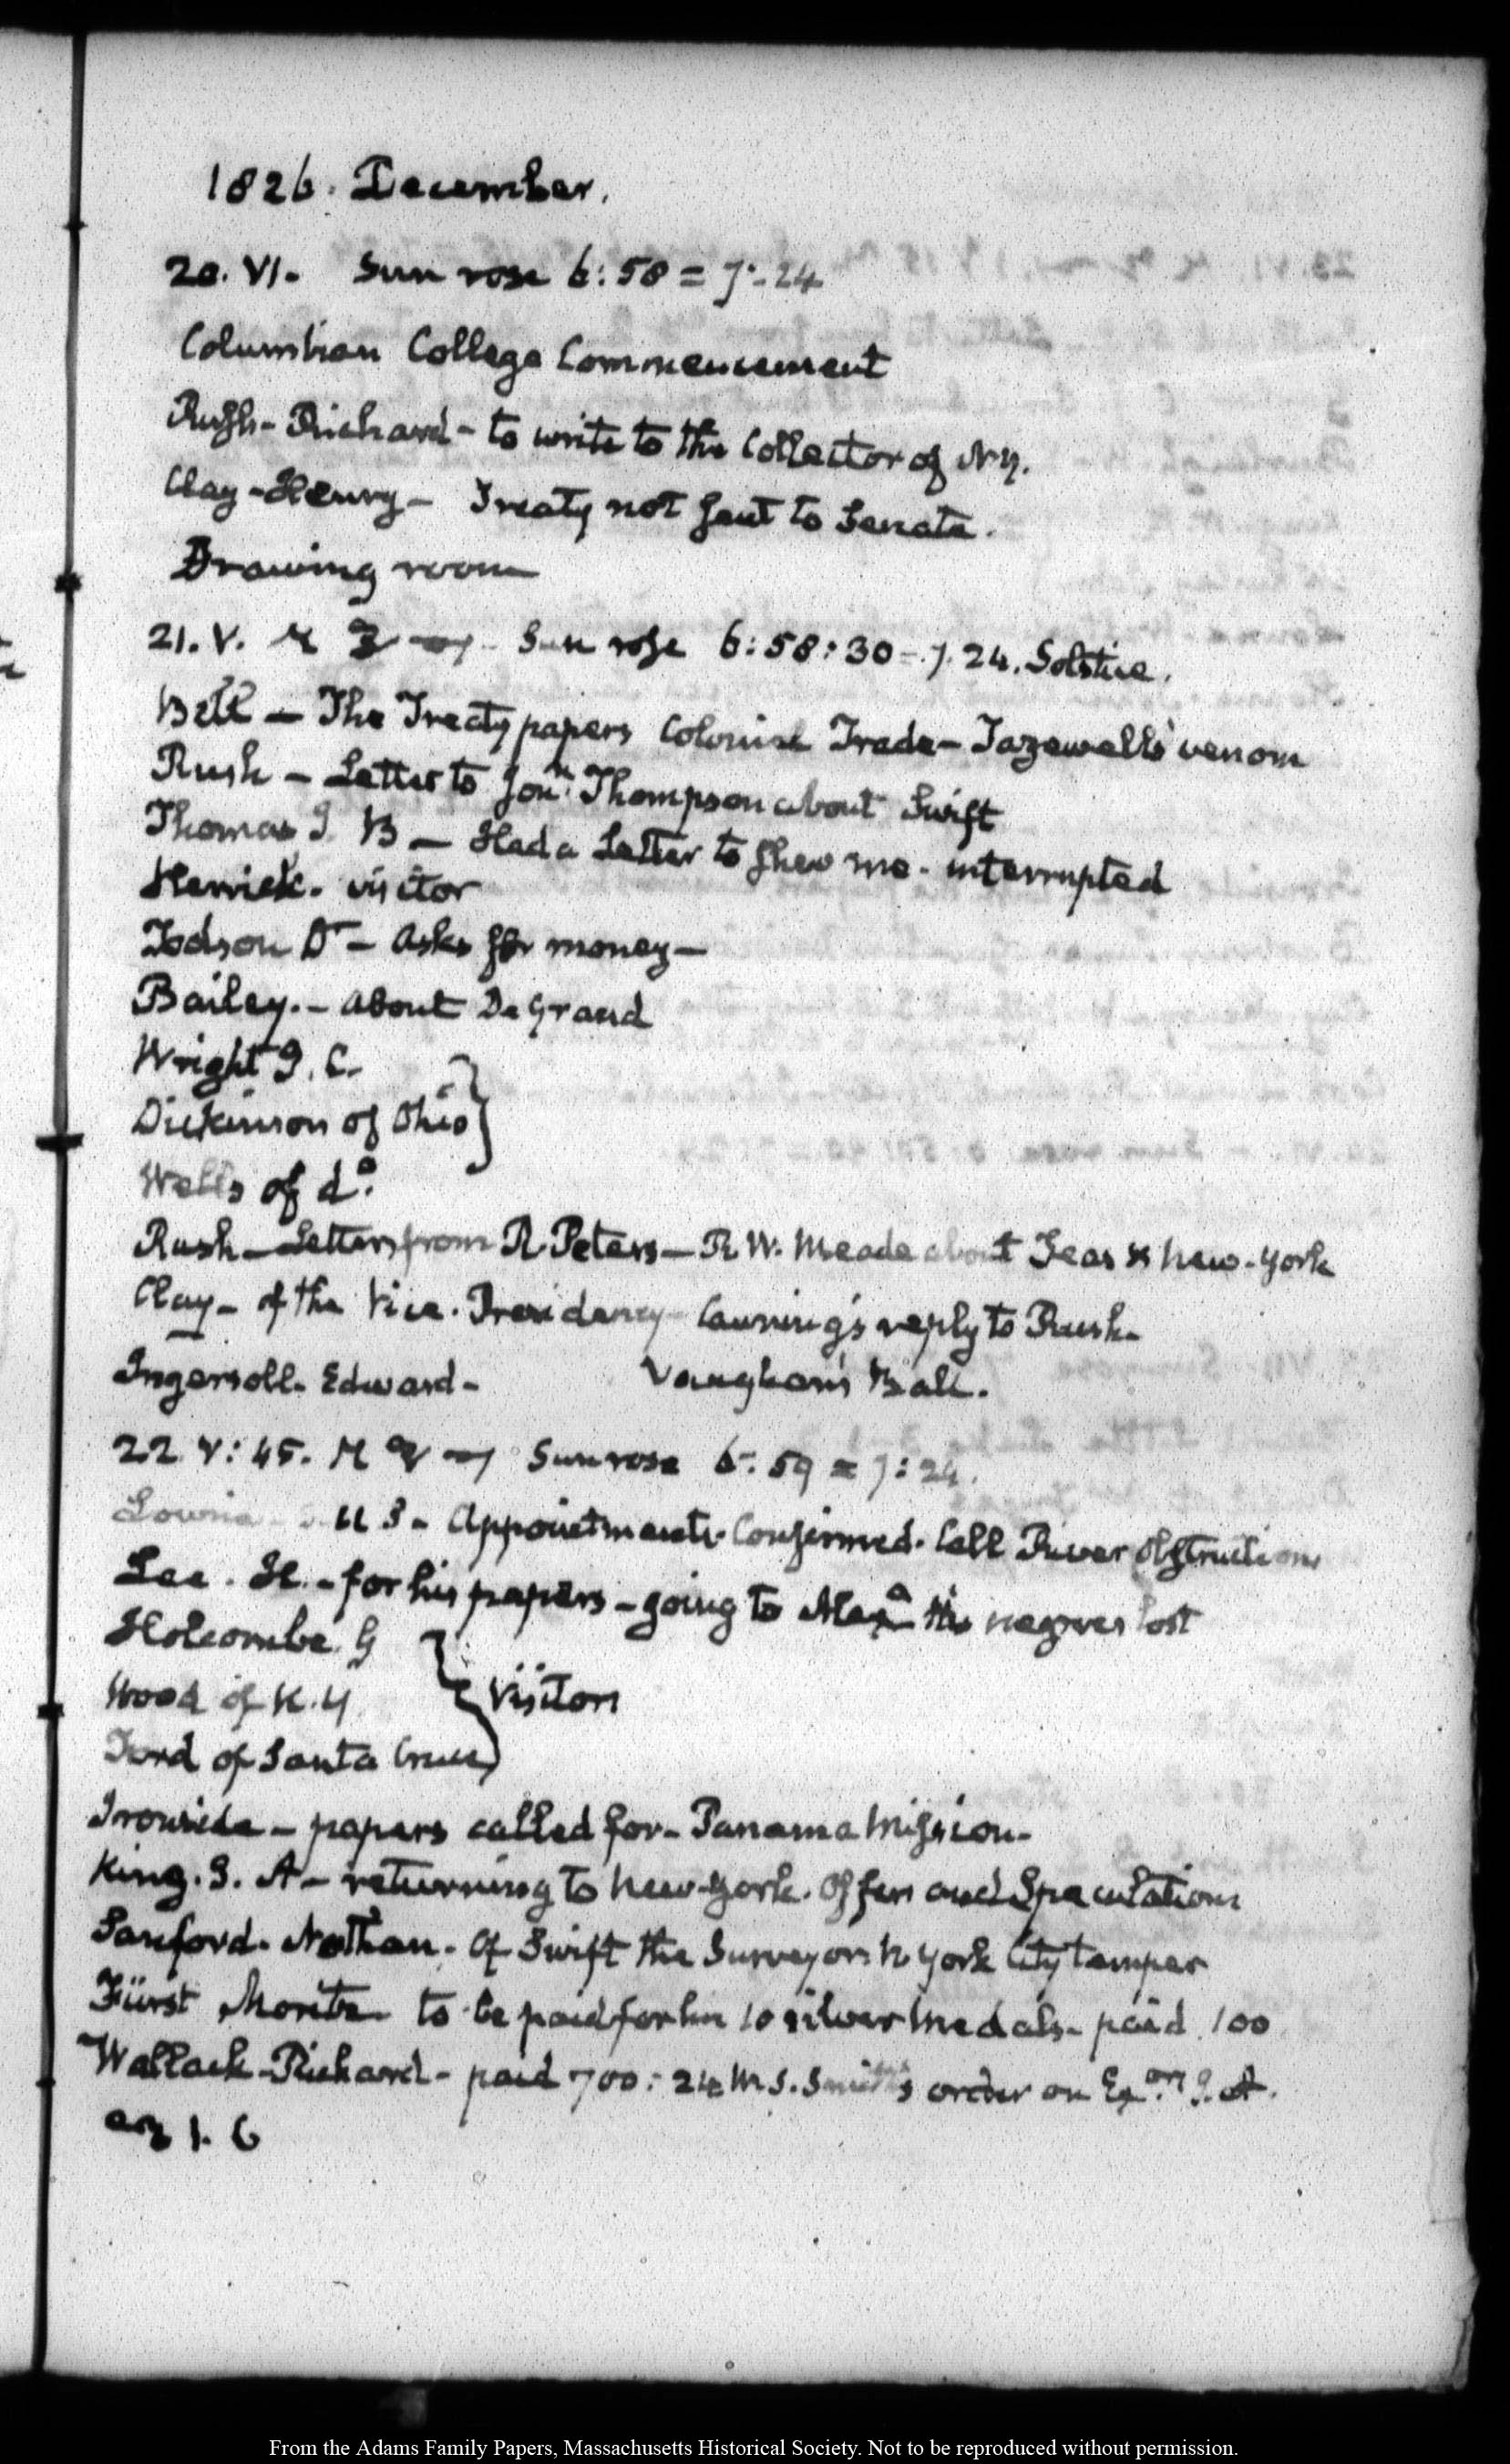 1826. December.
20. VI. Sun rose 6:58 = 7:24
Columbian College Commencement
Rush - Richard - to write to the Collector of N.Y.
Clay - Henry - Treaty not sent to Senate.
Drawing room
21. V. Sun rose 6:58:30 = 7.24. Solstice.
Bell - The Treaty papers Colonial Trade - Tazewell's venom
Rush - Letter to Jon.n Thompson about Swift
Thomas J B - Had a Letter to shew me - interrupted
Herrick. visitor
Todson Dr - Asks for money -
Bailey. - about De Grand
Wright J. C.
Dickinson of Ohio
Wells of do.
Rush - Letters from R Peters - R W. Meade about New-York
Clay - of the Vice-Presidency - Canning's reply to Rush.
Ingersoll. Edward - Vaughan's Ball.
22. V:45. Sun rose 6:59 = 7:24.
Lowrie - U S - Appointments. Confirmed. Call River Obstructions
Lee. H. - for his papers - going to Alexa the negroes lost
Holcombe G
Wood of N.Y. Visitors
Ford of Santa Cruz
Ironside - papers called for - Panama Mission -
King. J. A - returning to New-York. Offers and Speculations
Sanford. Nathan. Of Swift the Surveyor. N York City temper
Fürst Moritz to be paid for him 10 silver Medals - paid 100
Wallach - Richard - paid 700:24 W. S. Smith's order on Exor J. A.